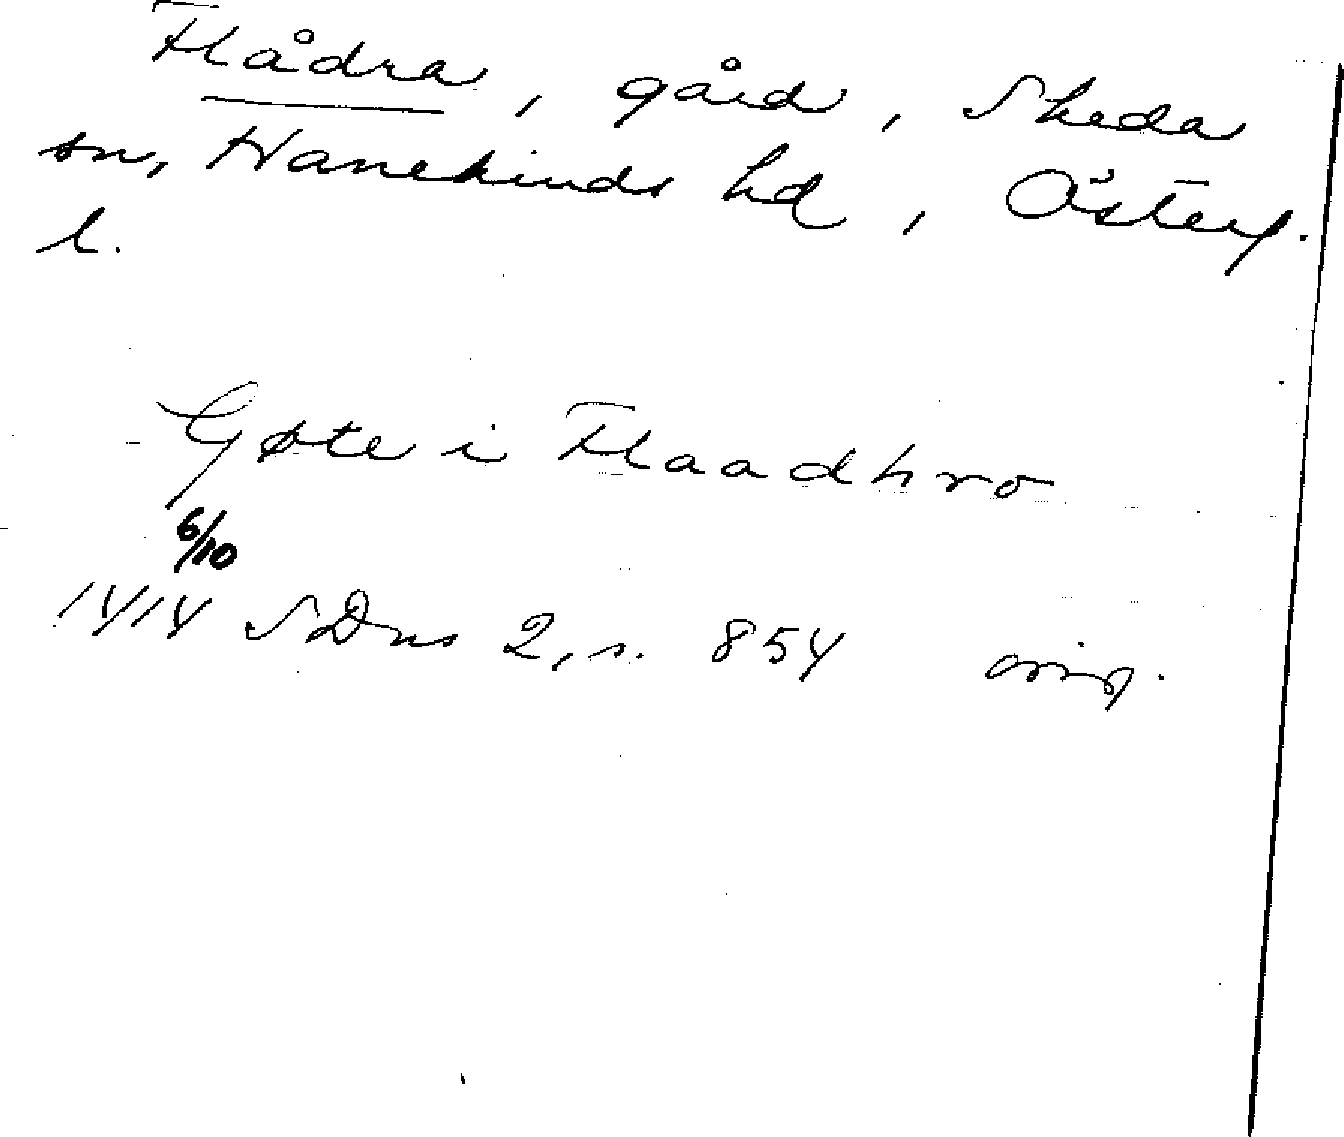 Flådra, gård, Skeda
sn, Hanekinds hd, Österg.
l.
Gøte i Flaadhro
6/10
1414 SDns 2, s. 854 orig.